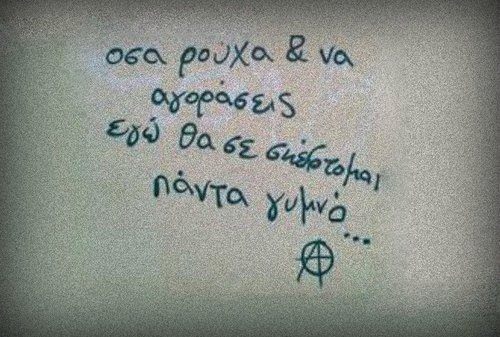 οσα ρούχα & να
αγοράσεις
εγώ θα σε σκέφτομαι
πάντα γυμνό...